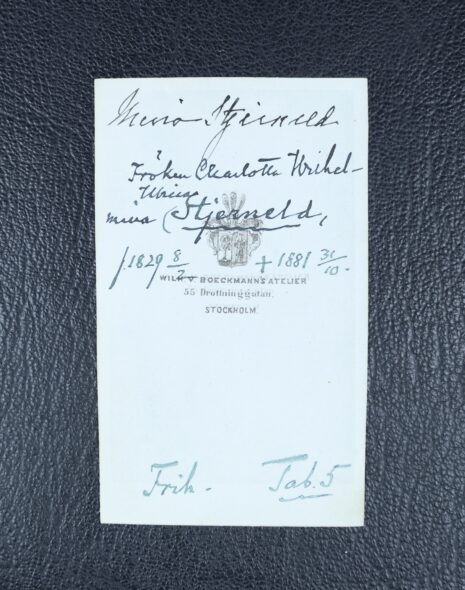 Mina Stjerneld
Fröken Charlotta Wilhel-
mina Stjerneld,
f. 1829 8/2 † 1881 31/10.
WILH. V. BOECKMANN'S ATELIER
55 Drottninggatan.
STOCKHOLM.
Frih. Tab. 5